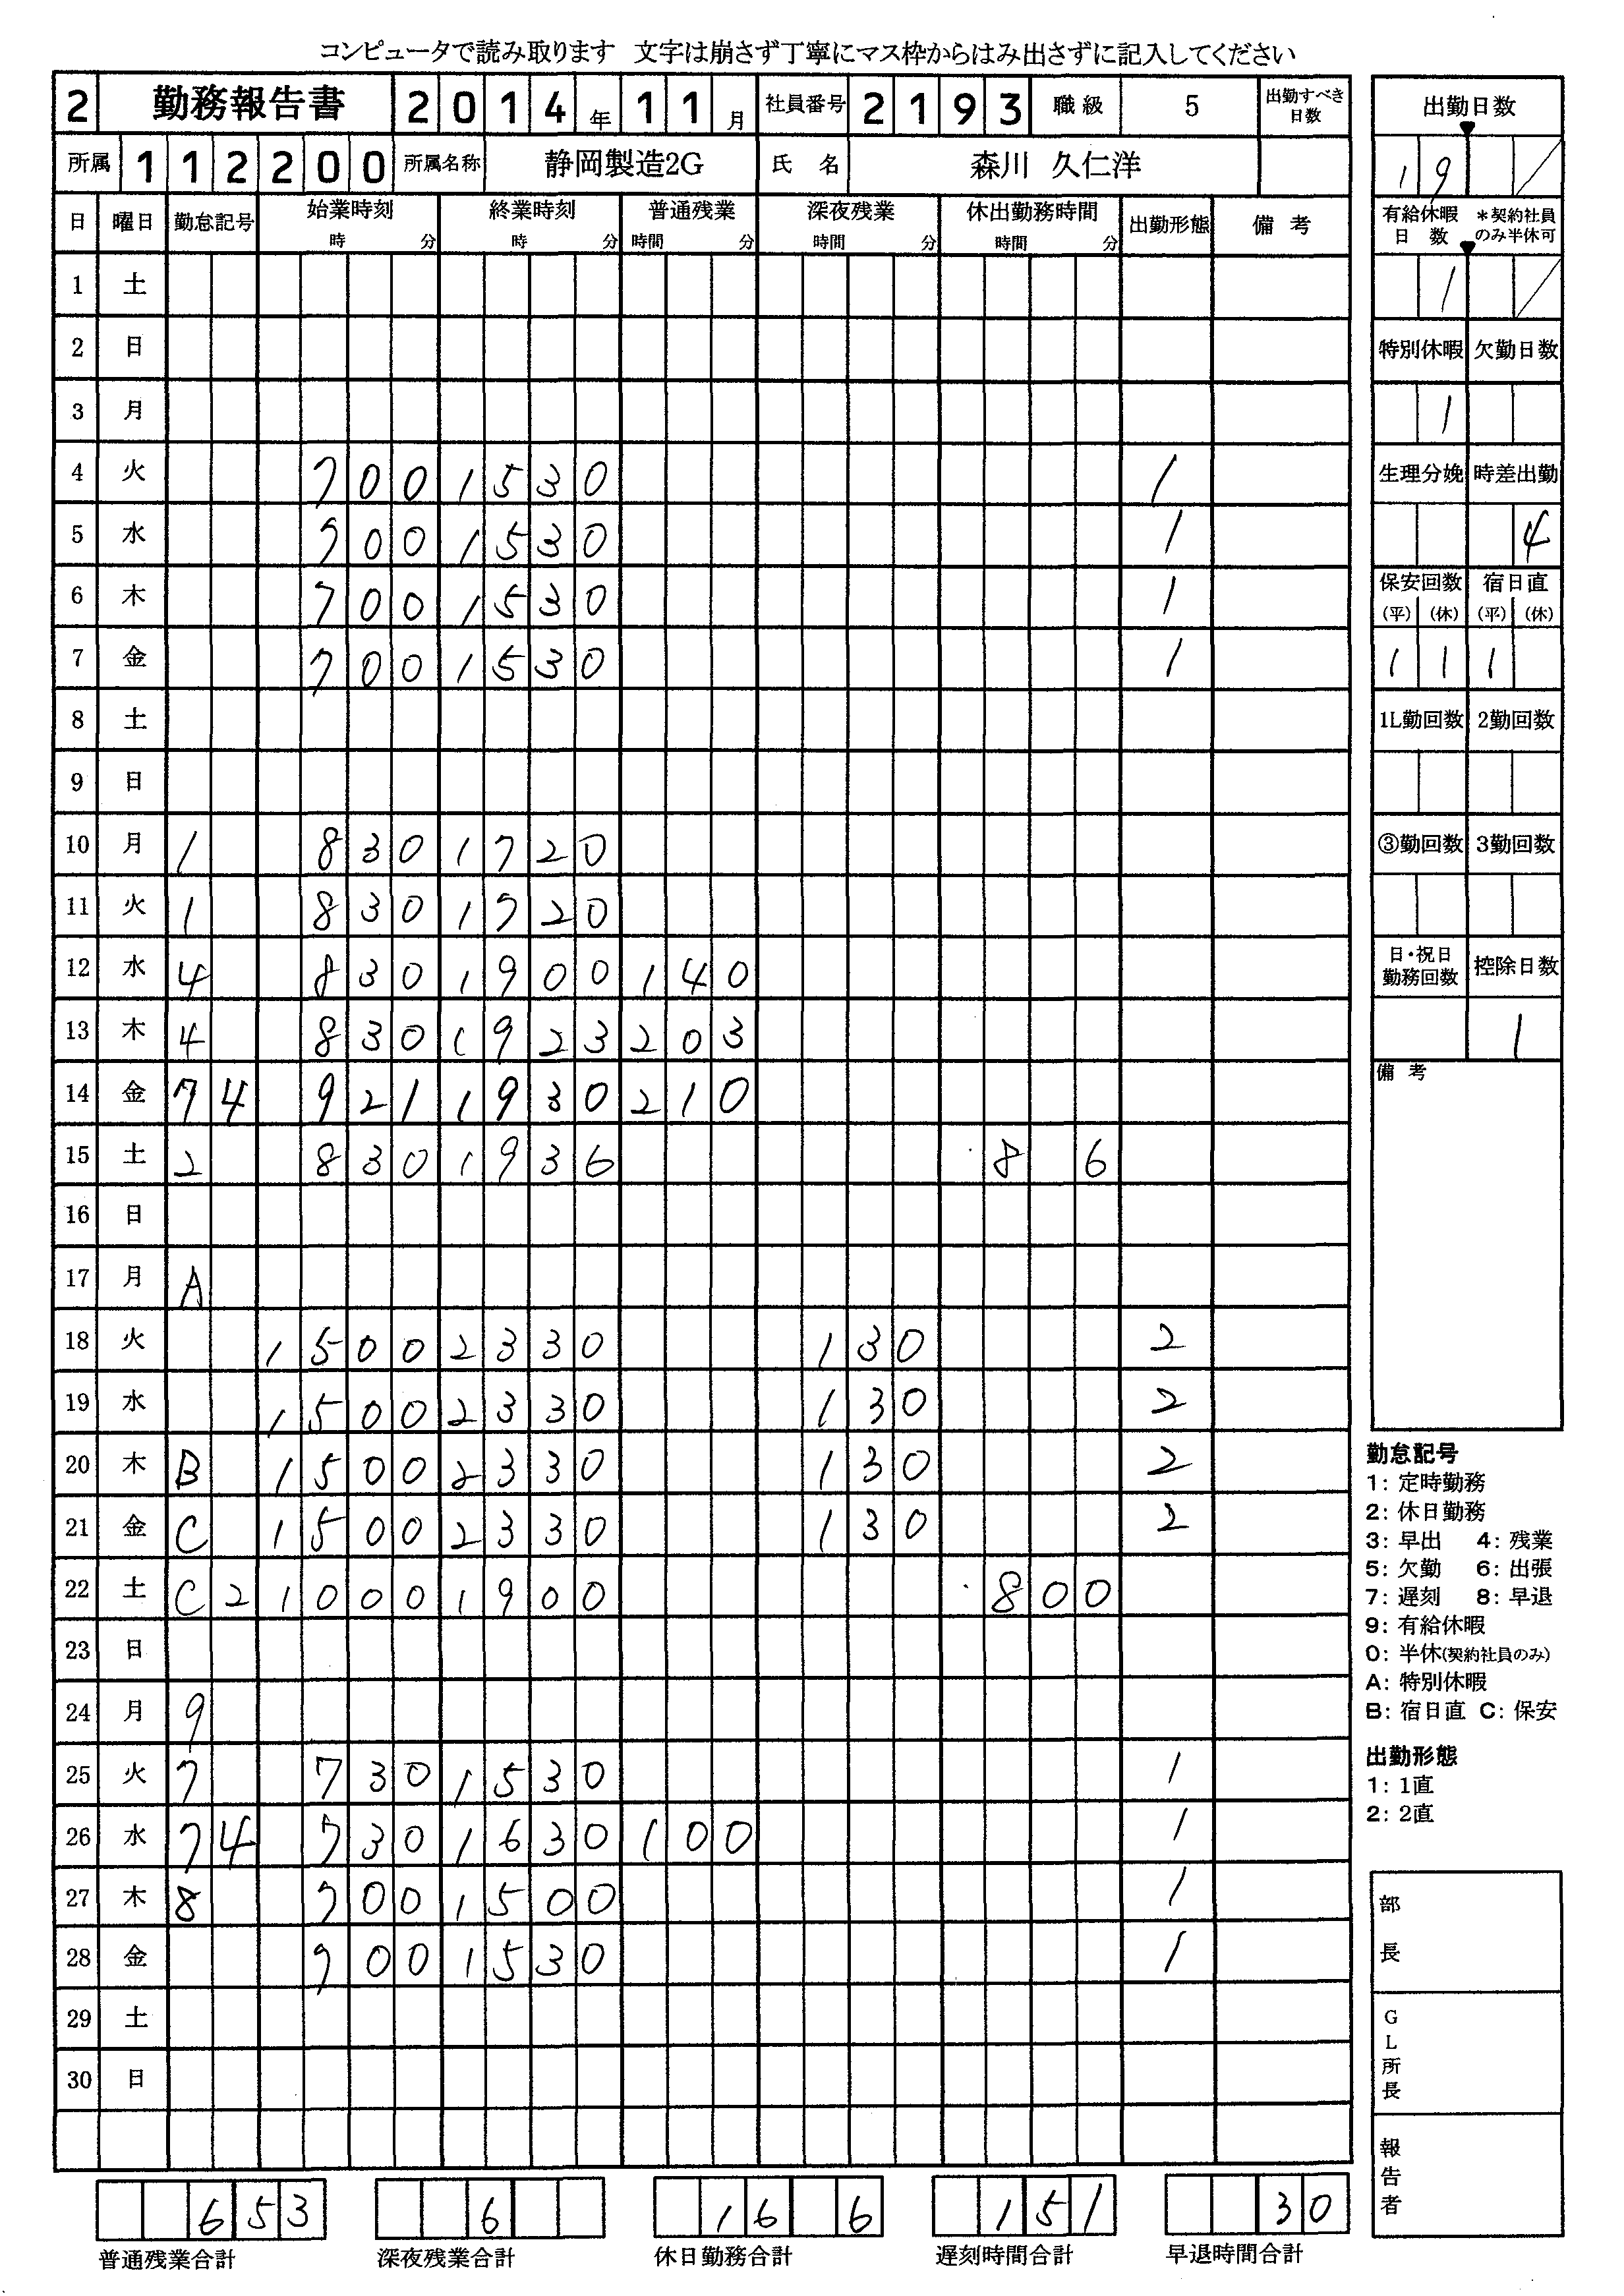 コンピュータで読み取ります 文字は崩さず丁寧にマス枠からはみ出さずに記入してください
2 勤務報告書 2014年11月 社員番号 2193 職級 5 出勤すべき日数
所属 112200 所属名称 静岡製造2G 氏名 森川 久仁洋
日 曜日 勤怠記号 始業時刻 時 分 終業時刻 時 分 普通残業 時間 分 深夜残業 時間 分 休出勤務時間 時間 分 出勤形態 備考
1 土
2 日
3 月
4 火 700 1530 1
5 水 700 1530 1
6 木 700 1530 1
7 金 700 1530 1
8 土
9 日
10 月 1 830 1720
11 火 1 830 1720
12 水 4 830 1900 140
13 木 4 830 1923 203
14 金 74 921 1930 210
15 土 2 830 1936 8 6
16 日
17 月 A
18 火 1500 2330 130 2
19 水 1500 2330 130 2
20 木 B 1500 2330 130 2
21 金 C 1500 2330 130 2
22 土 C2 1000 1900 800
23 日
24 月 9
25 火 7 730 1530 1
26 水 74 730 1630 100 1
27 木 8 700 1500 1
28 金 700 1530 1
29 土
30 日
653 6 16 6 151 30
普通残業合計 深夜残業合計 休日勤務合計 遅刻時間合計 早退時間合計
出勤日数
19
有給休暇日数 *契約社員のみ半休可
1
特別休暇 欠勤日数
1
生理分娩 時差出勤
4
保安回数 宿日直
(平) (休) (平) (休)
1 1 1
1L勤回数 2勤回数
③勤回数 3勤回数
日・祝日勤務回数 控除日数
1
備考
勤怠記号
1: 定時勤務
2: 休日勤務
3: 早出 4: 残業
5: 欠勤 6: 出張
7: 遅刻 8: 早退
9: 有給休暇
0: 半休(契約社員のみ)
A: 特別休暇
B: 宿日直 C: 保安
出勤形態
1: 1直
2: 2直
部長
GL所長
報告者